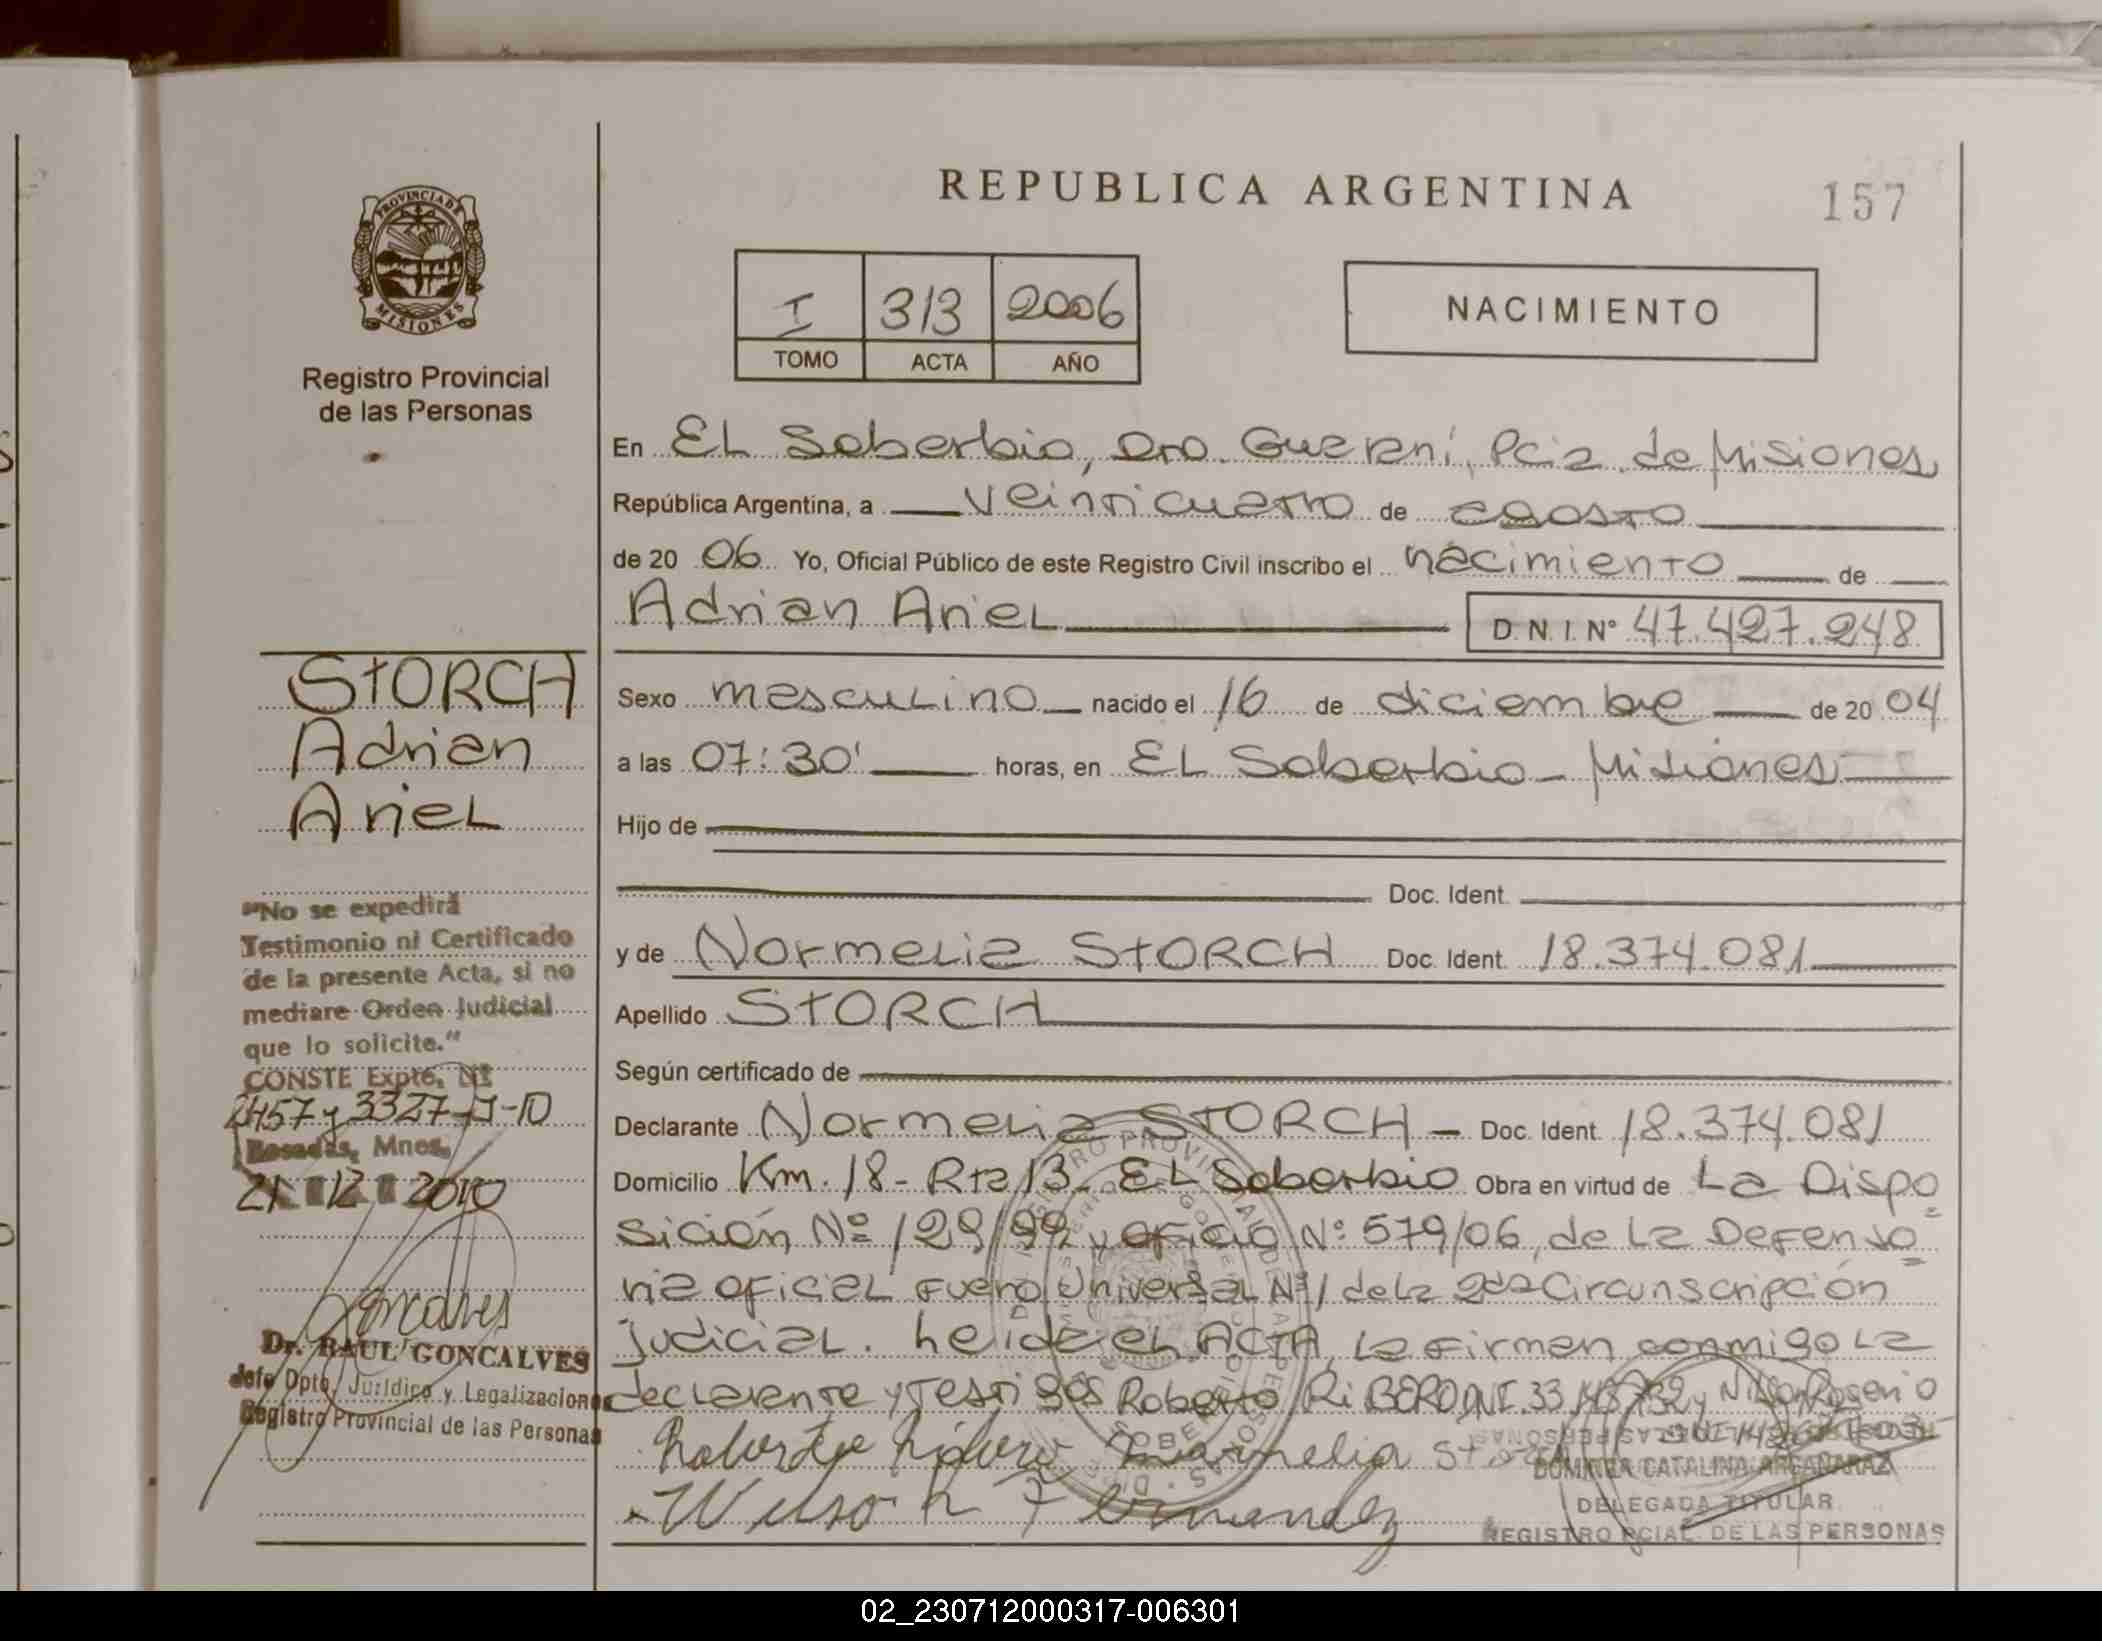 REPUBLICA ARGENTINA
157
PROVINCIA DE
MISIONES
Registro Provincial
de las Personas
I 313 2006
TOMO ACTA AÑO
NACIMIENTO
En EL Soberbio, Dto. Guarani, Pcia de Misiones
República Argentina, a veinticuatro de agosto
de 20 06 Yo, Oficial Público de este Registro Civil inscribo el nacimiento de
Adrian Ariel D.N.I. N° 47.427.248
Sexo masculino nacido el 16 de diciembre de 20 04
a las 07:30' horas, en EL Soberbio - Misiones
Hijo de
Doc. Ident.
y de Normelia STORCH Doc. Ident. 18.374.081
Apellido STORCH
Según certificado de
Declarante Normelia STORCH - Doc. Ident. 18.374.081
Domicilio Km. 18 - Rta 13 - EL Soberbio Obra en virtud de La Dispo
sición Nº 129/99 y oficio Nº 579/06, de La Defenso
ria oficial Fuero Universal Nº 1 de La 2da Circunscripción
Judicial. Leida el ACTA, La Firman conmigo La
declarente y testigos Roberto RiBERO DNI. 33.148.732 y
Roberto Ribero Normelia Storch
Wilson Fernandez
DELEGADA TITULAR
REGISTRO PCIAL. DE LAS PERSONAS
STORCH
Adrian
Ariel
"No se expedirá
Testimonio ni Certificado
de la presente Acta, si no
mediare Orden Judicial
que lo solicite."
CONSTE Expte. Nº
2457 y 3327-J-10
Posadas, Mnes,
21 12 2010
Dr. RAUL GONCALVES
Jefe Dpto. Jurídico y Legalizaciones
Registro Provincial de las Personas
02_230712000317-006301